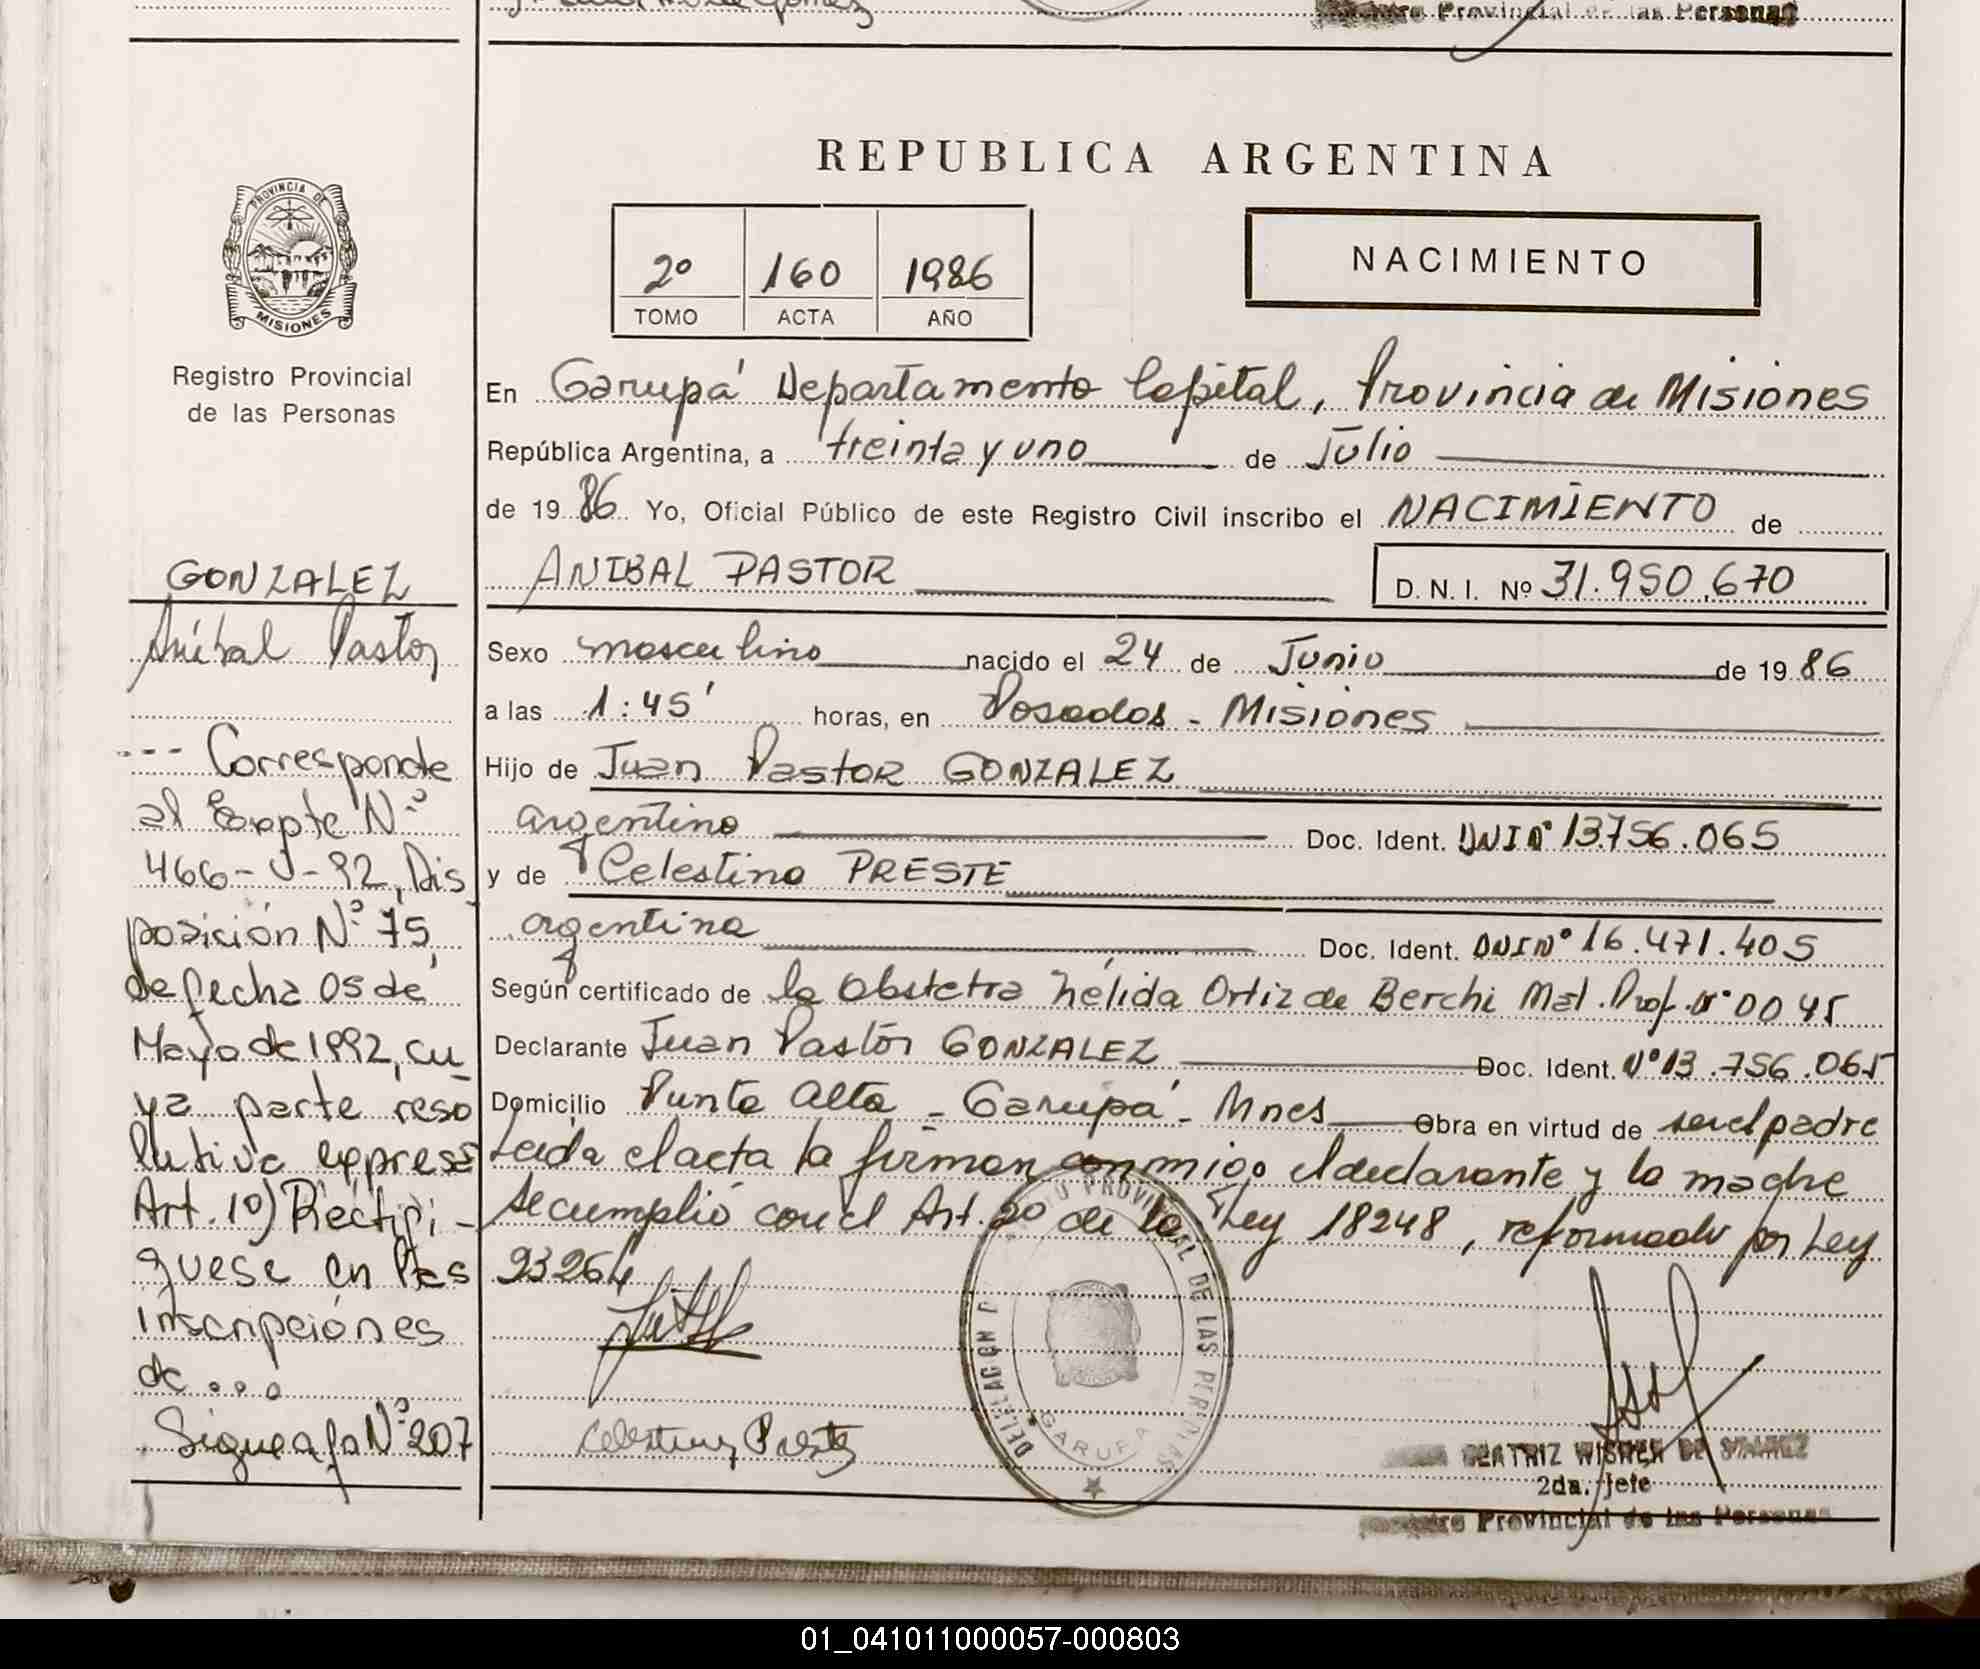 Registro Provincial de las Personas
REPUBLICA ARGENTINA
PROVINCIA DE MISIONES
2º 160 1986
TOMO ACTA AÑO
NACIMIENTO
Registro Provincial
de las Personas
GONZALEZ
Aníbal Pastor
--- Corresponde
al Expte Nº
466-U-92, Dis
posición Nº 75,
de fecha 05 de
Mayo de 1992, cu
ya parte reso
lutiva expresa
Art. 1º) Rectifi-
quese en las
inscripciones
de...
Sigue a fo Nº 207
En Garupá Departamento Capital, Provincia de Misiones
República Argentina, a treinta y uno de Julio
de 1986 Yo, Oficial Público de este Registro Civil inscribo el NACIMIENTO de
ANIBAL PASTOR D.N.I. Nº 31.950.670
Sexo masculino nacido el 24 de Junio de 1986
a las 1:45' horas, en Posadas - Misiones
Hijo de Juan Pastor GONZALEZ
argentino Doc. Ident. DNI Nº 13.756.065
y de Celestina PRESTE
argentina Doc. Ident. DNI Nº 16.471.405
Según certificado de la Obstetra Nélida Ortiz de Berchi Mat. Prof. Nº 0045
Declarante Juan Pastor GONZALEZ Doc. Ident. Nº 13.756.065
Domicilio Punta Alta - Garupá - Mnes Obra en virtud de ser el padre
Leida el acta la firman conmigo el declarante y la madre
se cumplió con el Art. 2º de la Ley 18248, reformado por Ley
23264
REGISTRO PROVINCIAL DE LAS PERSONAS
DELEGACION
GARUPA
Celestina Preste
BEATRIZ WISNER DE SUAREZ
2da. Jefe
Registro Provincial de las Personas
01_041011000057-000803